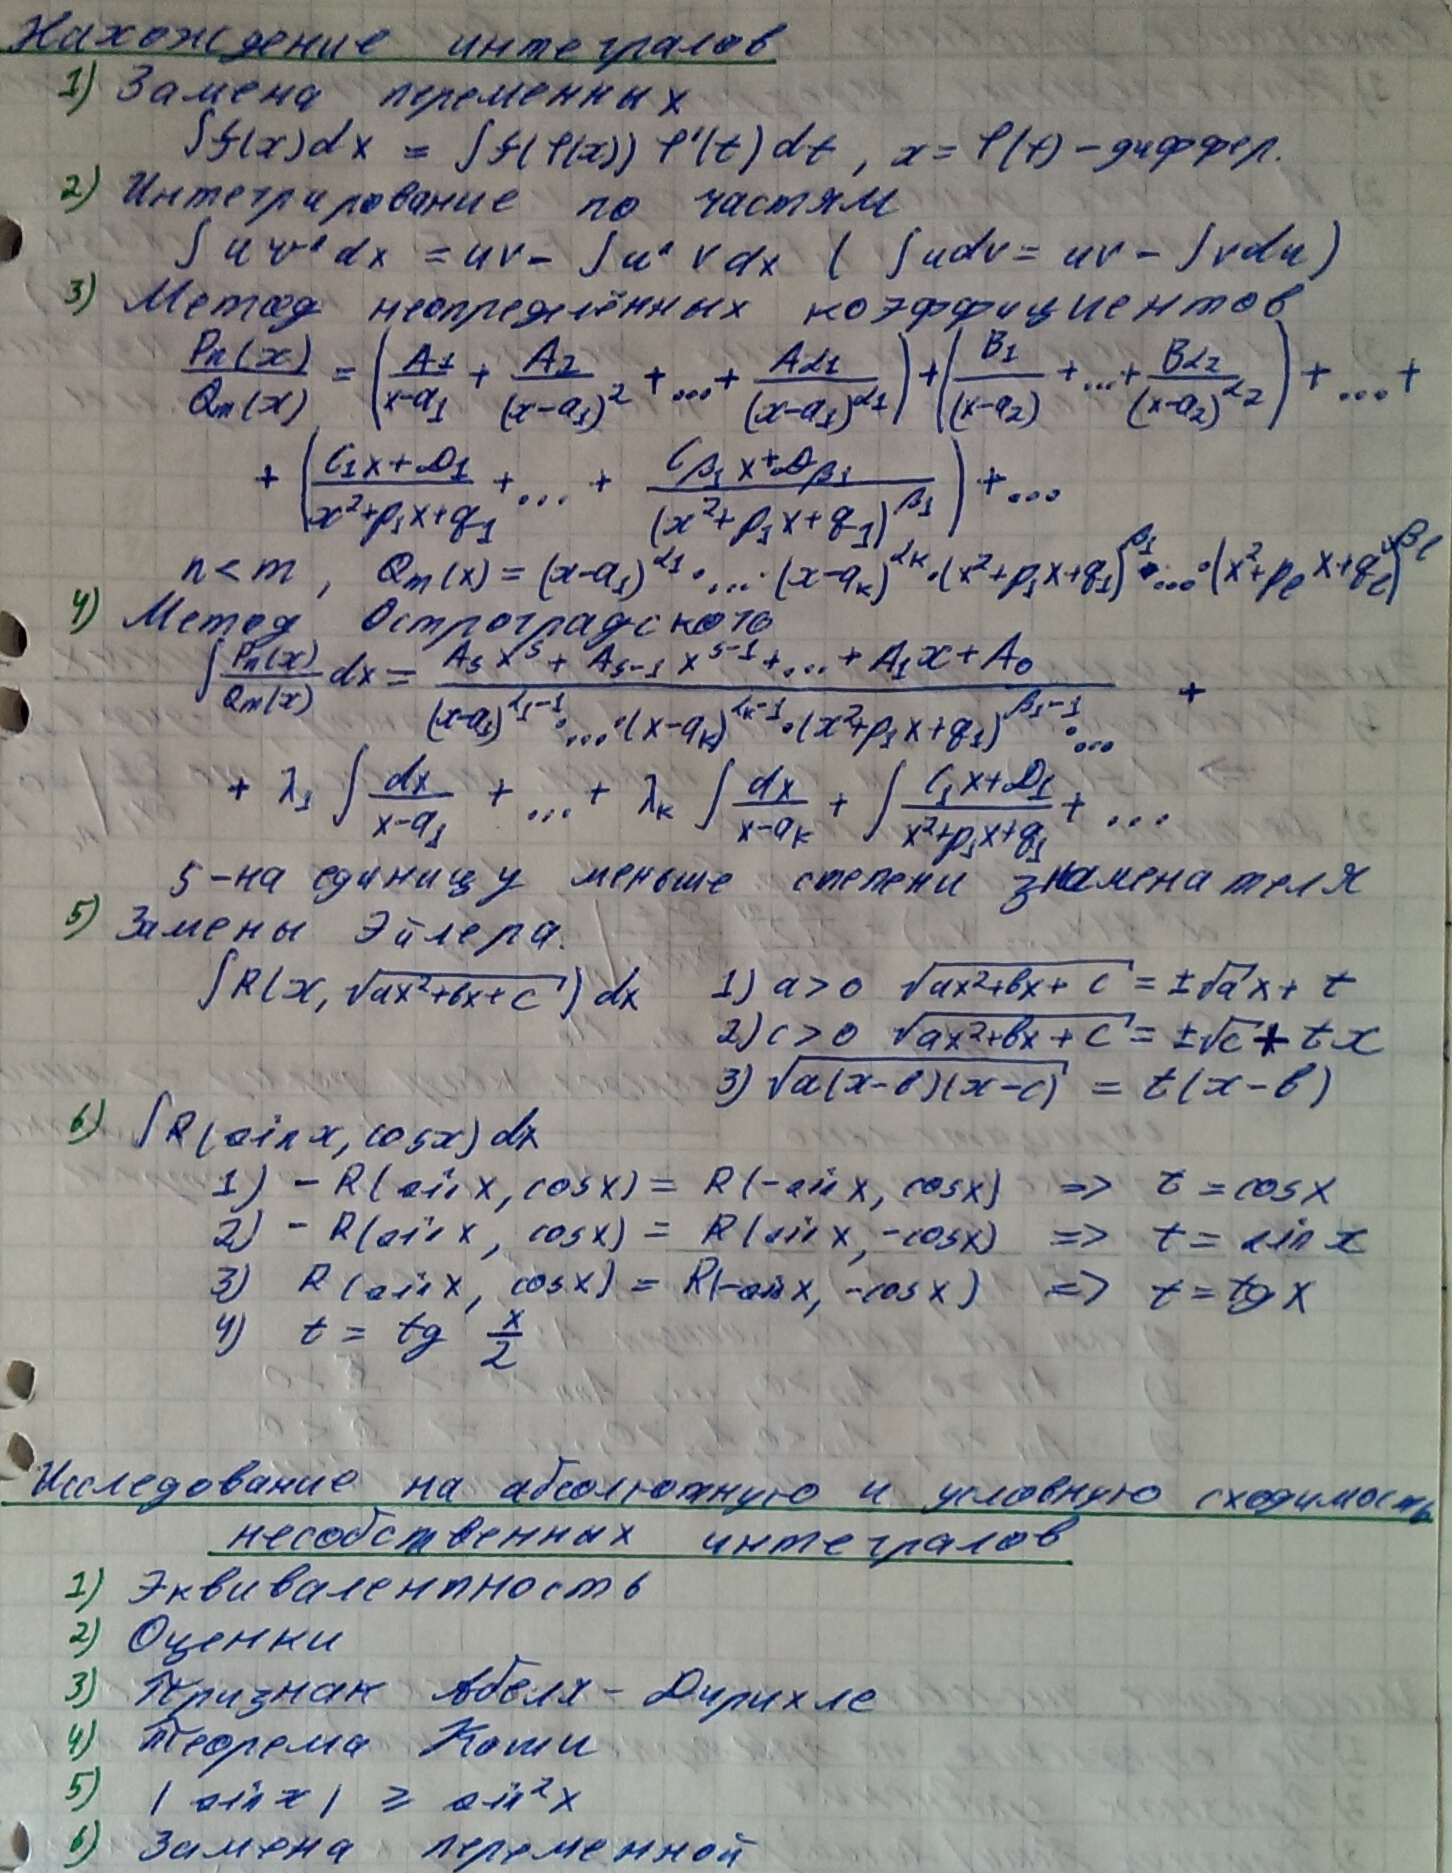 Нахождение интегралов
1) Замена переменных
∫f(x)dx = ∫f(φ(x)) φ'(t)dt, x = φ(t) – диффер.
2) Интегрирование по частям
∫uv'dx = uv – ∫u'vdx ( ∫udv = uv – ∫vdu )
3) Метод неопределённых коэффициентов
Pₙ(x)/Qₘ(x) = (A₁/(x-a₁) + A₂/(x-a₁)² + ... + A_{α₁}/(x-a₁)^{α₁}) + (B₁/(x-a₂) + ... + B_{α₂}/(x-a₂)^{α₂}) + ... +
+ ((C₁x+D₁)/(x²+p₁x+q₁) + ... + (C_{β₁}x+D_{β₁})/(x²+p₁x+q₁)^{β₁}) + ...
n<m, Qₘ(x) = (x-a₁)^{α₁}·...·(x-a_k)^{α_k}·(x²+p₁x+q₁)^{β₁}·...·(x²+p_ℓx+q_ℓ)^{β_ℓ}
4) Метод Остроградского
∫Pₙ(x)/Qₘ(x) dx = (A_s x^s + A_{s-1}x^{s-1} + ... + A₁x + A₀)/((x-a₁)^{α₁-1}·...·(x-a_k)^{α_k-1}·(x²+p₁x+q₁)^{β₁-1}·...) +
+ λ₁∫dx/(x-a₁) + ... + λ_k∫dx/(x-a_k) + ∫(C₁x+D₁)/(x²+p₁x+q₁) + ...
s – на единицу меньше степени знаменателя
5) Замены Эйлера.
∫R(x, √(ax²+bx+c)) dx 1) a>0 √(ax²+bx+c) = ±√a x + t
2) c>0 √(ax²+bx+c) = ±√c + tx
3) √(a(x-b)(x-c)) = t(x-b)
6) ∫R(sin x, cos x) dx
1) –R(sin x, cos x) = R(-sin x, cos x) => t = cos x
2) –R(sin x, cos x) = R(sin x, -cos x) => t = sin x
3) R(sin x, cos x) = R(-sin x, -cos x) => t = tg x
4) t = tg x/2
Исследование на абсолютную и условную сходимость
несобственных интегралов
1) Эквивалентность
2) Оценки
3) Признак Абеля – Дирихле
4) Теорема Коши
5) |sin x| ≥ sin²x
6) Замена переменной